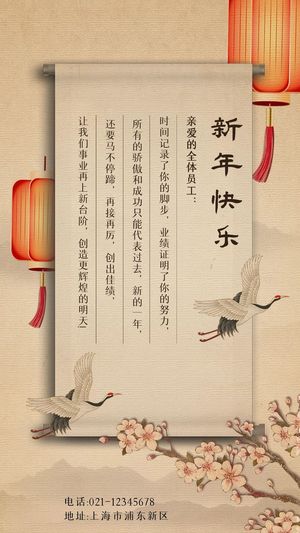 新年快乐
亲爱的全体员工：
时间记录了你的脚步，业绩证明了你的努力，
所有的骄傲和成功只能代表过去，新的一年，
还要马不停蹄，再接再厉，创出佳绩，
让我们事业再上新台阶，创造更辉煌的明天！
电话:021-12345678
地址:上海市浦东新区